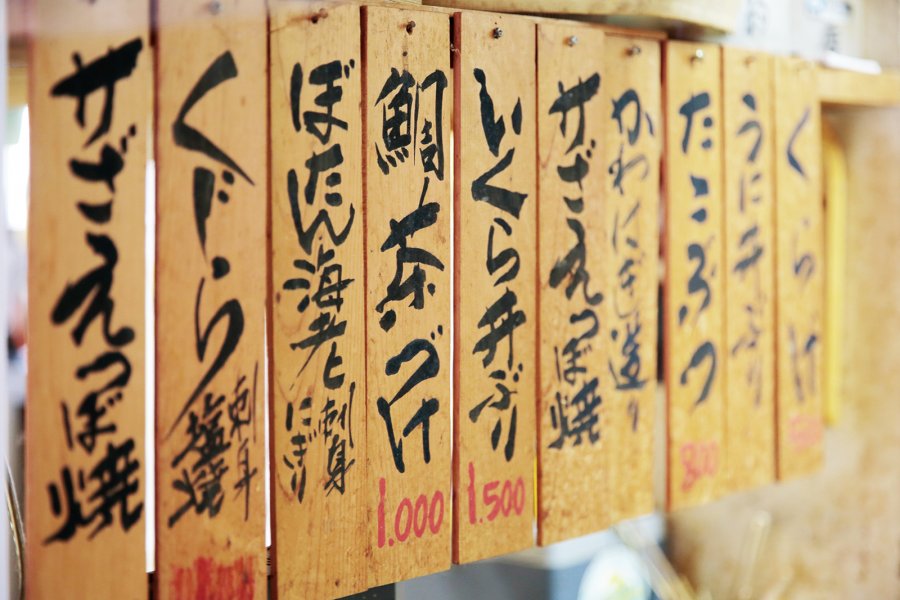 サざえつぼ焼
くじら
刺身
塩焼
ぼたん海老
刺身
にぎり
鯛茶づけ
1.000
いくら丼ぶり
1.500
サざえつぼ焼
かわはぎ造り
たこぶつ
800
うに丼ぶり
くらげ